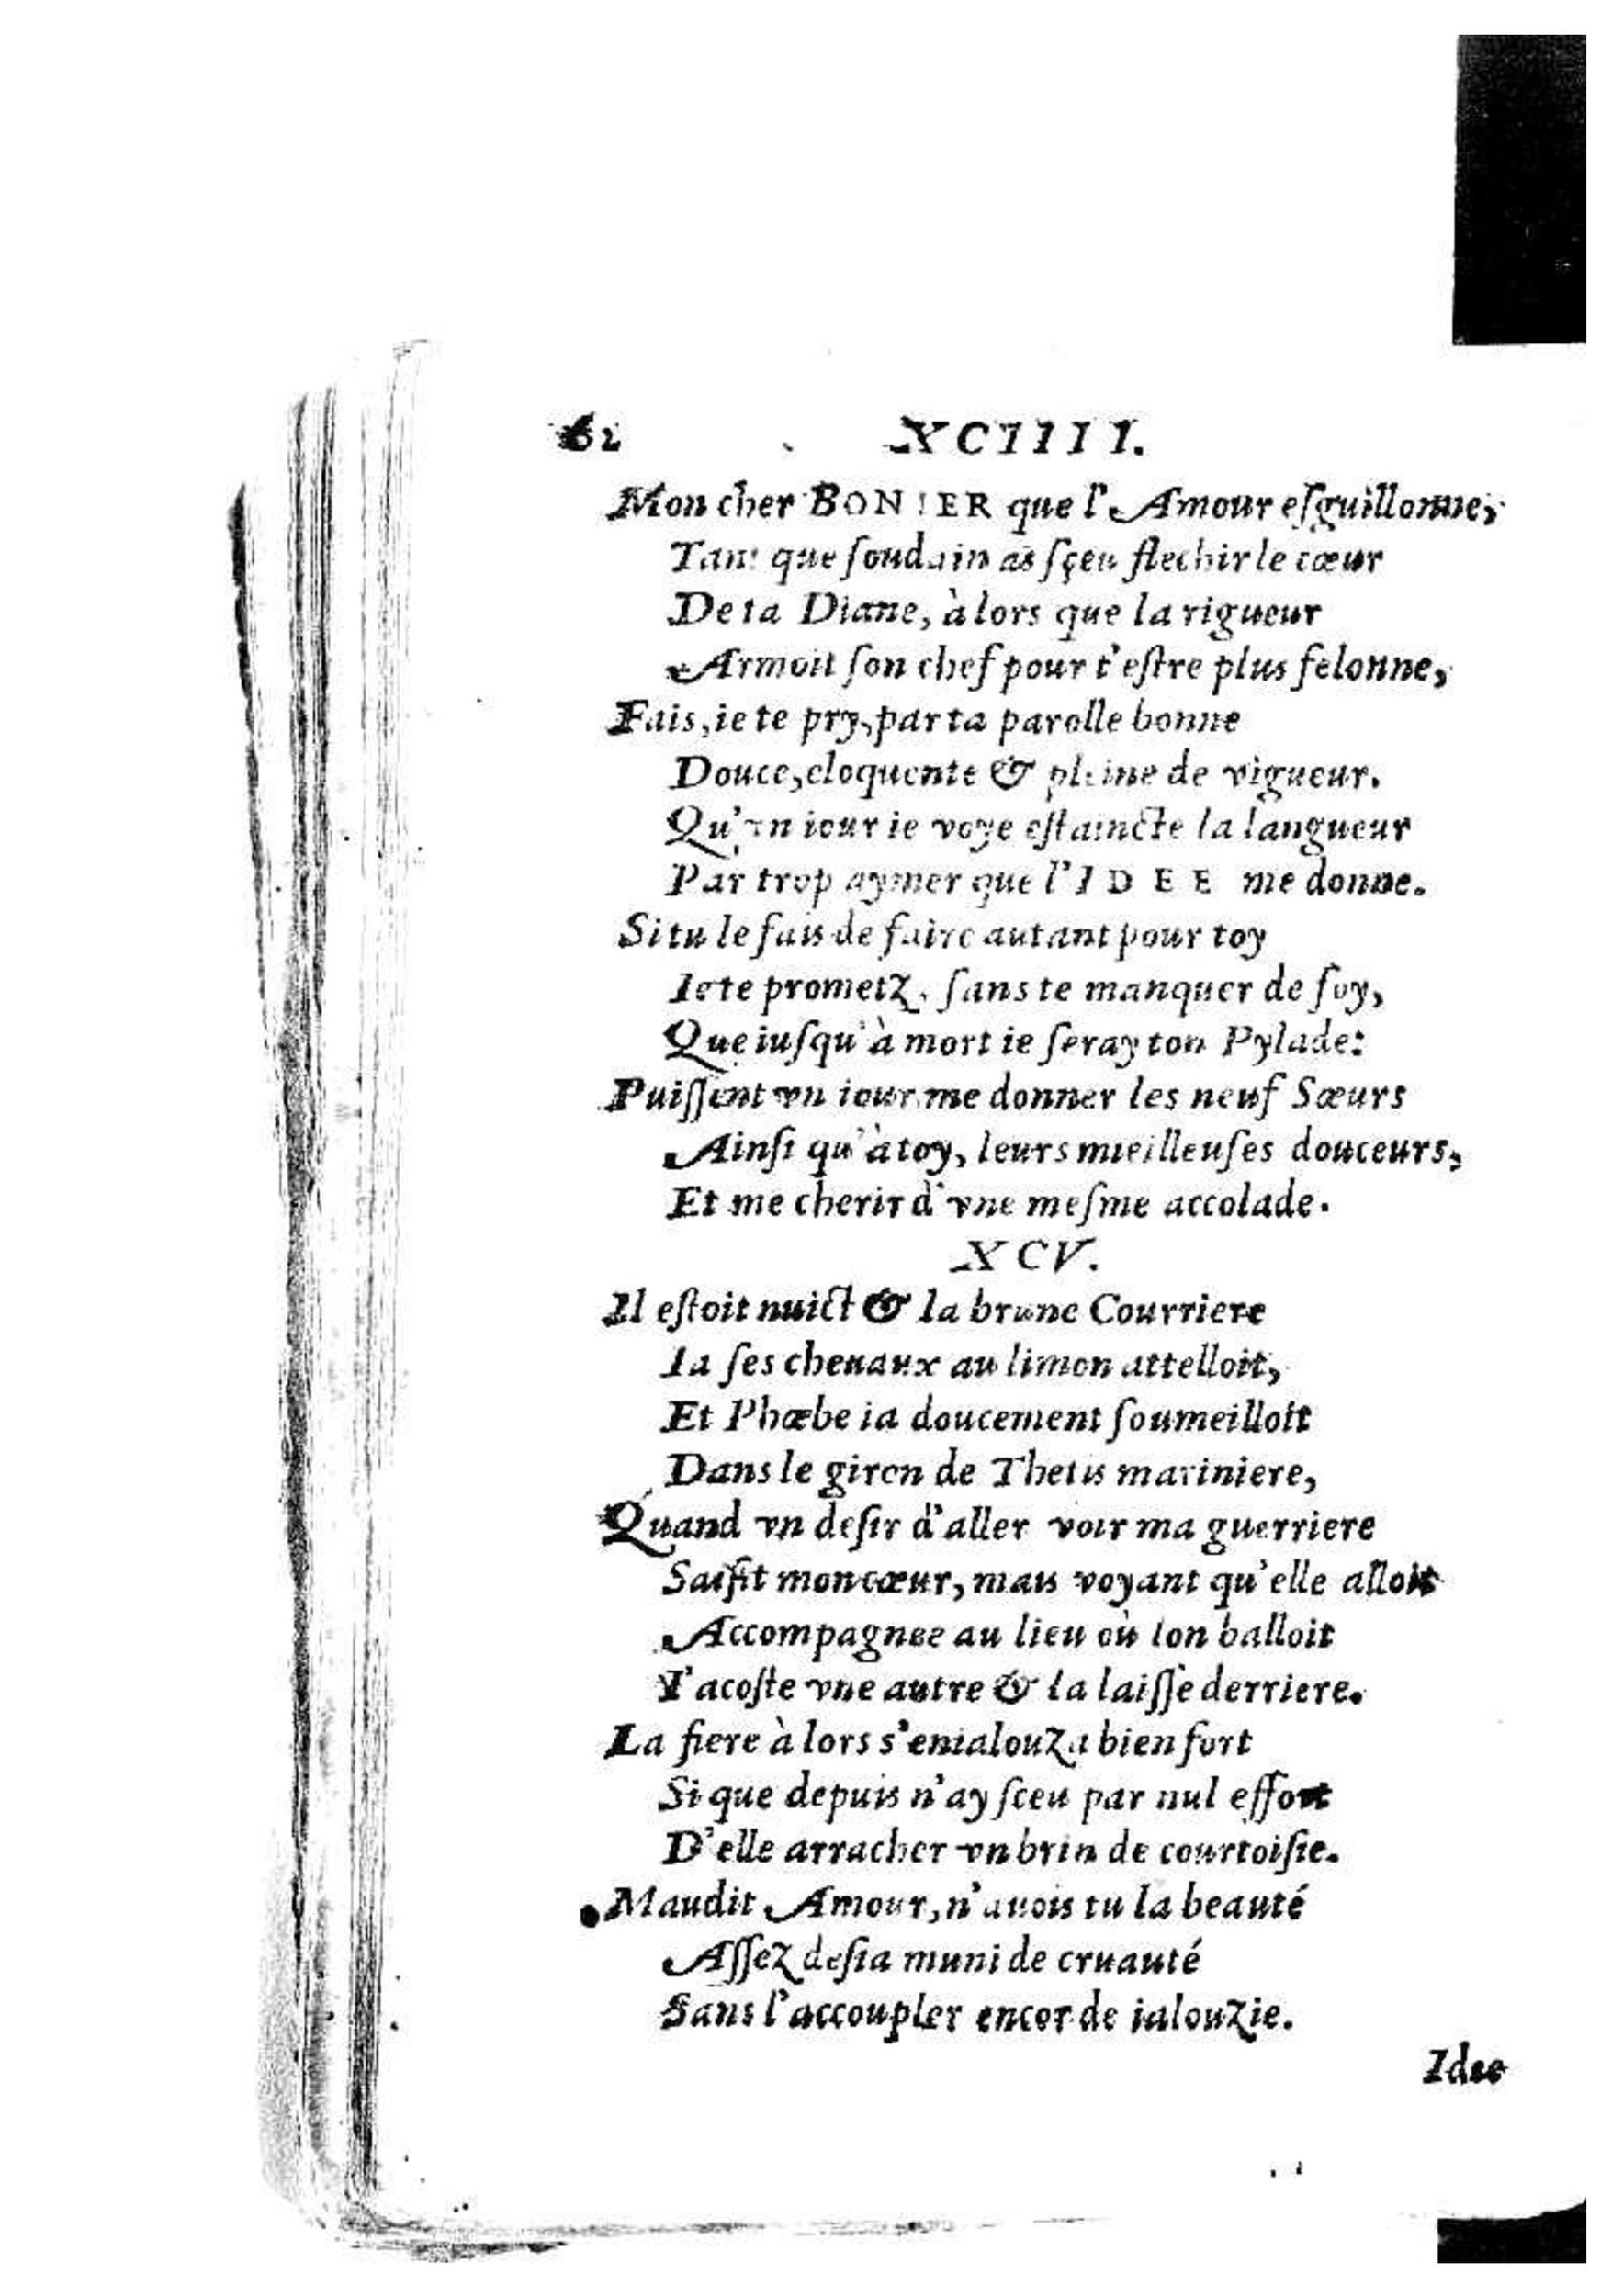 62 XCIIII.
Mon cher BONIER que l'Amour eſguillonne,
Tant que ſoudain as ſçeu flechir le cœur
De ta Diane, à lors que la rigueur
Armoit ſon chef pour t'eſtre plus felonne,
Fais, ie te pry, par ta parolle bonne
Douce, eloquente & pleine de vigueur.
Qu'vn iour ie voye eſtaincte la langueur
Par trop aymer que l'IDEE me donne.
Si tu le fais de faire autant pour toy
Ie te prometz, ſans te manquer de foy,
Que iuſqu'à mort ie ſeray ton Pylade:
Puiſſent vn iour me donner les neuf Sœurs
Ainſi qu'à toy, leurs mieilleuſes douceurs,
Et me cherir d'vne meſme accolade.
XCV.
Il eſtoit nuict & la brune Courriere
Ia ſes cheuaux au limon attelloit,
Et Phœbe ia doucement ſoumeilloit
Dans le giron de Thetis mariniere,
Quand vn deſir d'aller voir ma guerriere
Saiſit mon cœur, mais voyant qu'elle alloit
Accompagnee au lieu où lon balloit
I'acoſte vne autre & la laiſſè derriere.
La fiere à lors s'enialouza bien fort
Si que depuis n'ay ſceu par nul effort
D'elle arracher vn brin de courtoiſie.
Maudit Amour, n'auois tu la beauté
Aſſez deſia muni de cruauté
Sans l'accoupler encor de ialouzie.
Idee